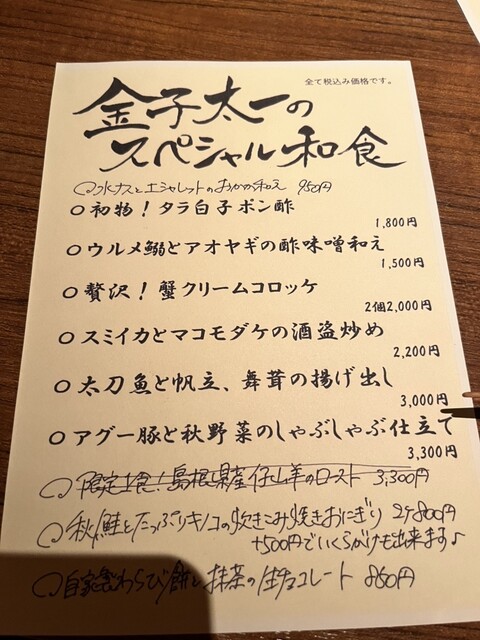 全て税込み価格です。
金子太一の
スペシャル和食
○水ナスとエシャレットのおかか和え 950円
○初物！タラ白子ポン酢
1,800円
○ウルメ鰯とアオヤギの酢味噌和え
1,500円
○贅沢！蟹クリームコロッケ
2個2,000円
○スミイカとマコモダケの酒盗炒め
2,200円
○太刀魚と帆立、舞茸の揚げ出し
3,000円
○アグー豚と秋野菜のしゃぶしゃぶ仕立て
3,300円
○限定1食！島根県産仔山羊のロースト 3,300円
○秋鮭とたっぷりキノコの炊きこみ焼きおにぎり 2ケ800円
+500円でいくらがけも出来ます♪
○自家製わらび餅と抹茶の生チョコレート 860円